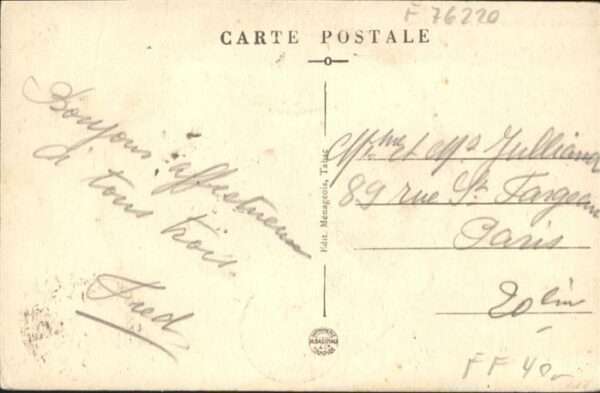 F 76220
CARTE POSTALE
Bonjours affectueux
à tous trois.
Fred
Edit. Menageois, Tabac
Mme et Mr Jullian
89 rue St Fargeau
Paris
20 ème
FF 40